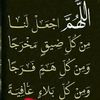 اللَّهُمَّ اجْعَلْ لَنَا
مِنْ كُلِّ ضِيقٍ مَخْرَجًا
وَمِنْ كُلِّ هَمٍّ فَرَجًا
وَمِنْ كُلِّ بَلَاءٍ عَافِيَةً